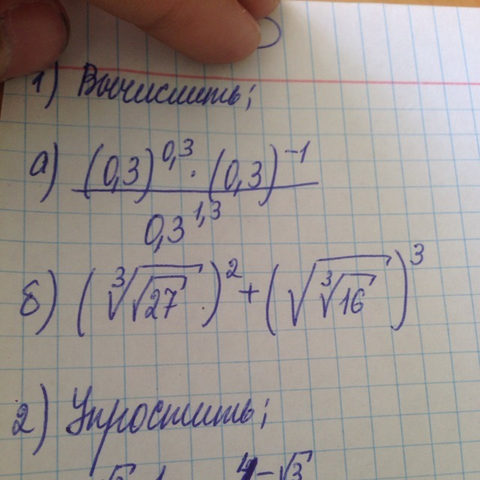 1) Вычислить;
а) (0,3)^0,3 · (0,3)^-1
0,3^1,3
б) (∛√27)^2 + (√∛16)^3
2) Упростить;
4-√3